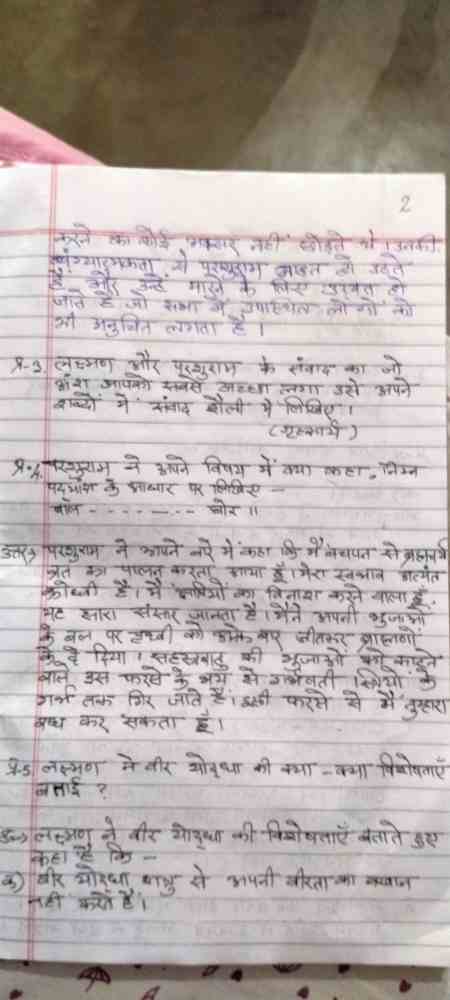 2
करने का कोई अवसर नहीं छोड़ते थे। उनकी
व्यंग्यात्मकता से परशुराम आहत हो उठते
हैं और उन्हें मारने के लिए उद्यत हो
जाते हैं जो सभा में उपस्थित लोगों को
भी अनुचित लगता है।
प्र-3. लक्ष्मण और परशुराम के संवाद का जो
अंश आपको सबसे अच्छा लगा उसे अपने
शब्दों में संवाद शैली में लिखिए।
(गृहकार्य)
प्र-4. परशुराम ने अपने विषय में क्या कहा, निम्न
पद्यांश के आधार पर लिखिए –
बाल - - - - - - - - घोर।।
उत्तर→ परशुराम ने अपने बारे में कहा कि मैं बचपन से ब्रह्मचर्य
व्रत का पालन करता आया हूँ। मेरा स्वभाव अत्यंत
क्रोधी है। मैं क्षत्रियों का विनाश करने वाला हूँ,
यह सारा संसार जानता है। मैंने अपनी भुजाओं
के बल पर पृथ्वी को अनेक बार जीतकर ब्राह्मणों
को दे दिया। सहस्त्रबाहु की भुजाओं को काटने
वाले इस फरसे के भय से गर्भवती स्त्रियों के
गर्भ तक गिर जाते हैं। इसी फरसे से मैं तुम्हारा
वध कर सकता हूँ।
प्र-5. लक्ष्मण ने वीर योद्धा की क्या-क्या विशेषताएँ
बताई ?
उत्तर→ लक्ष्मण ने वीर योद्धा की विशेषताएँ बताते हुए
कहा है कि –
क) वीर योद्धा शत्रु से अपनी वीरता का बखान
नहीं करते हैं।